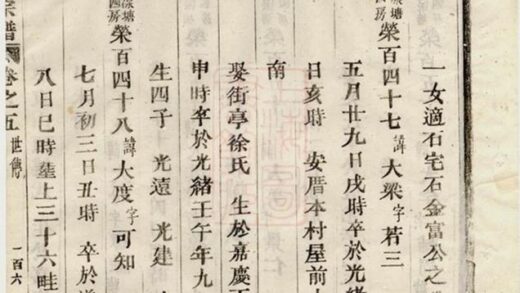 一女適石宅石金富公之
塘
房
榮百四十七諱大梁字若三
五月廿九日戌時卒於光緒
日亥時 安厝本村屋前
南
娶街亭徐氏 生於嘉慶
申時卒於光緒壬午年九
生四子 光遠 光建
塘
四房
榮百四十八諱大度字可知
七月初三日丑時 卒於
八日巳時塟上三十六畦
宗譜 卷之五 世傳 一百六